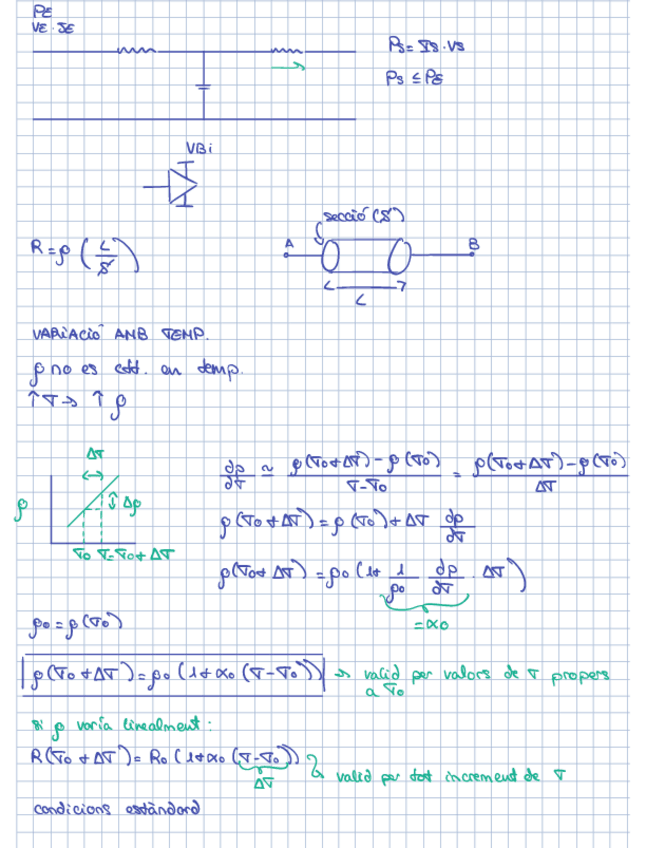 PE
VE · IE
Ps = Is · Vs
Ps ≤ PE
VBi
secció (S)
R = ρ (L/S)
A
B
L
VARIACIÓ AMB TEMP.
ρ no es ctt. en temp.
↑T → ↑ρ
ΔT
dρ/dT ≃ (ρ(T0+ΔT) - ρ(T0))/(T-T0) = (ρ(T0+ΔT) - ρ(T0))/ΔT
ρ
Δρ
ρ(T0+ΔT) = ρ(T0) + ΔT dρ/dT
T0 T=T0+ΔT
ρ(T0+ΔT) = ρ0 (1+ 1/ρ0 dρ/dT · ΔT)
= α0
ρ0 = ρ(T0)
ρ(T0+ΔT) = ρ0 (1+α0 (T-T0)) → valid per valors de T propers
a T0
Si ρ varía linealment:
R(T0+ΔT) = R0 (1+α0 (T-T0))
ΔT
valid per tot increment de T
condicions estàndard